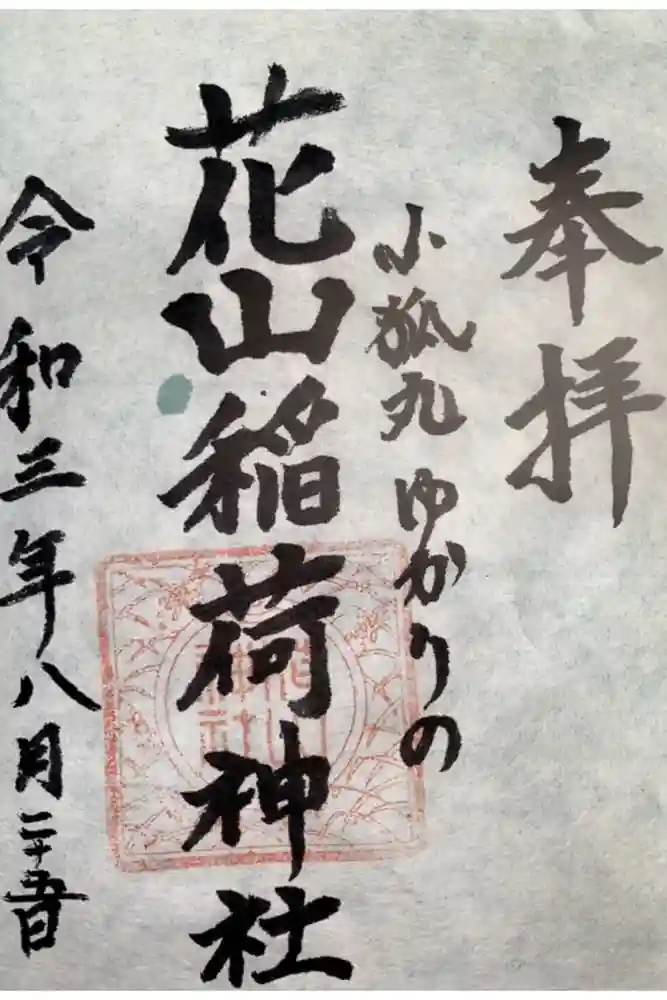 奉拝
小狐丸ゆかりの
花山稲荷神社
令和三年八月二十五日